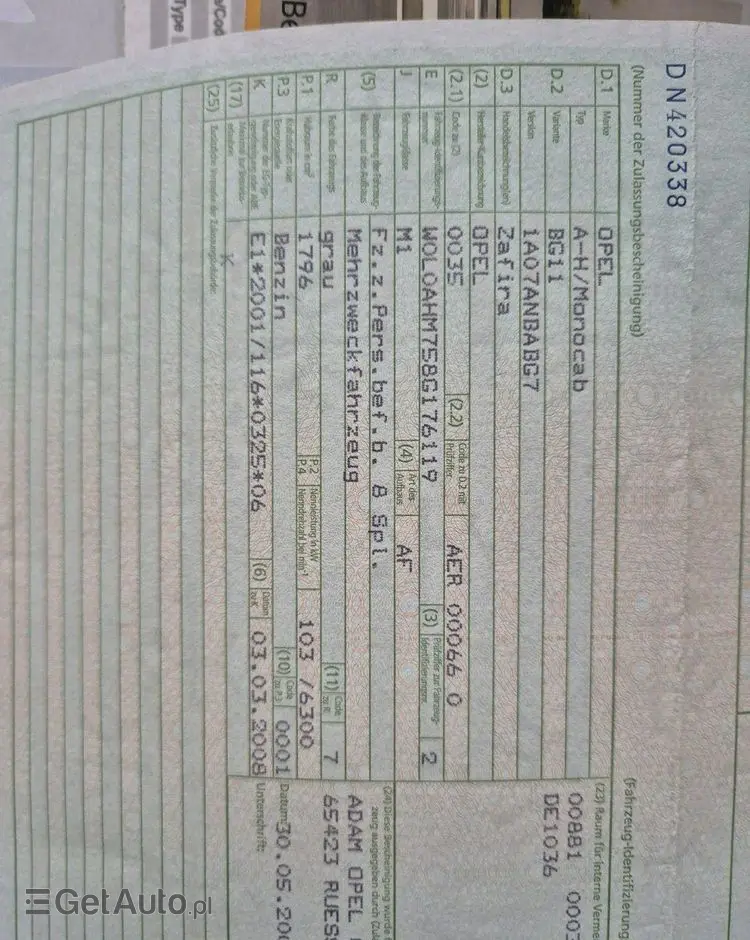 Type
o/Cod
Be
DN420338
(Nummer der Zulassungsbescheinigung)
(Fahrzeug-Identifizierung
D.1 Marke OPEL
Typ A-H/Monocab
D.2 Variante BG11
Version 1A07ANBABG7
D.3 Handelsbezeichnung(en) Zafira
(2) Hersteller-Kurzbezeichnung OPEL
(2.1) Code zu (2) 0035 (2.2) Code zu D.2 mit Prüfziffer AER 00066 0
E Fahrzeug-Identifizierungs-nummer W0L0AHM758G176119 (3) Prüfziffer zur Fahrzeug-Identifizierungsnr. 2
J Fahrzeugklasse M1 (4) Art des Aufbaus AF
(5) Bezeichnung der Fahrzeug-klasse und des Aufbaus Fz.z.Pers.bef.b. 8 Spl.
Mehrzweckfahrzeug
R Farbe des Fahrzeugs grau (11) Code zu R 7
P.1 Hubraum in cm³ 1796 P.2 Nennleistung in kW P.4 Nenndrehzahl bei min⁻¹ 103 /6300
P.3 Kraftstoffart oder Energiequelle Benzin (10) Code zu P.3 0001
K E1*2001/116*0325*06 (6) Datum zu K 03.03.2008
(17) K
(25)
(23) Raum für interne Verme
00881 000
DE1036
(24) Diese Bescheinigung wurde f
zeug ausgegeben durch (Zul
ADAM OPEL
65423 RUESS
Datum: 30.05.200
Unterschrift:
GetAuto.pl